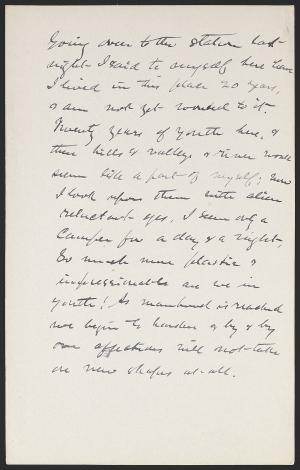 Going over to the station last
night I said to myself here have
I lived in this place 20 years,
& am not yet wonted to it.
Twenty years of youth here, &
these hills & valleys & river would
seem like a part of myself; now
I look upon them with alien
reluctant eyes. I seem only a
Camper for a day & a night.
So much more plastic &
impressionable are we in
youth! As manhood is reached
we begin to harden & by & by
our affections will not take
on new shapes at all.